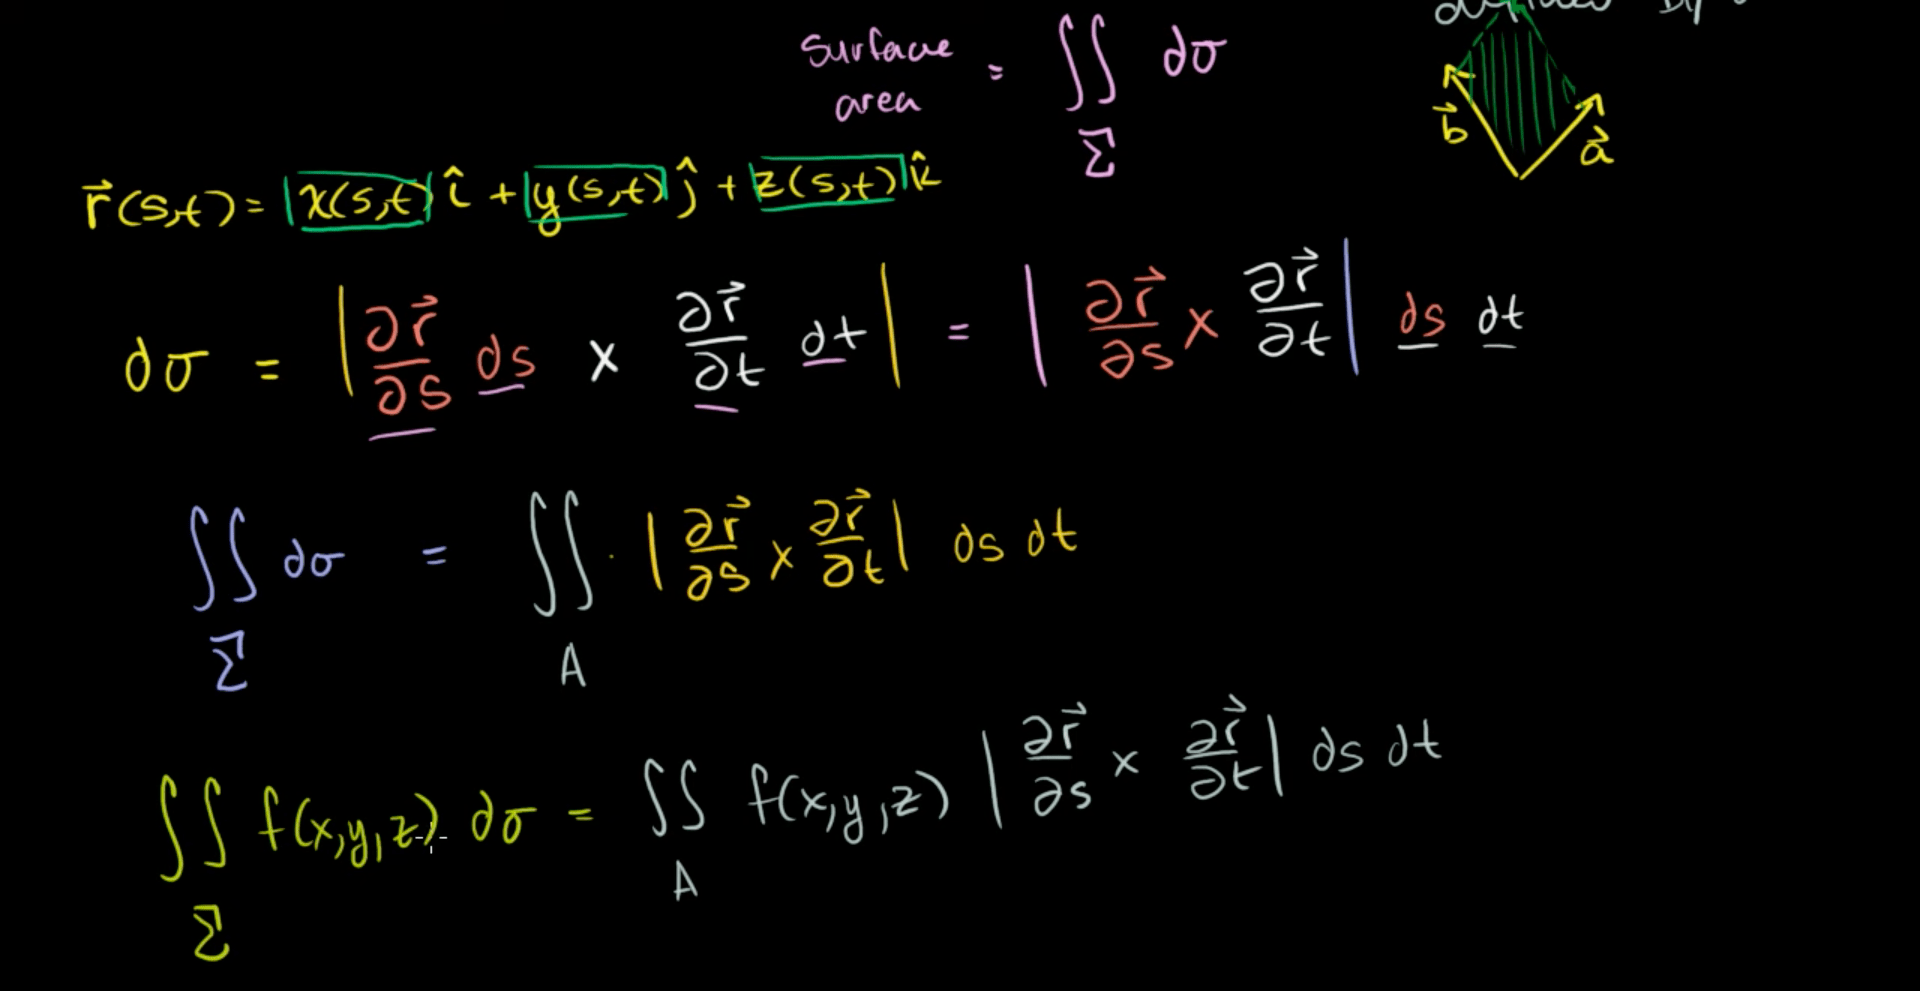 surface area = ∬_Σ dσ
b⃗ a⃗
r⃗(s,t) = x(s,t) î + y(s,t) ĵ + z(s,t) k̂
dσ = | ∂r⃗/∂s ds × ∂r⃗/∂t dt | = | ∂r⃗/∂s × ∂r⃗/∂t | ds dt
∬_Σ dσ = ∬_A · | ∂r⃗/∂s × ∂r⃗/∂t | ds dt
∬_Σ f(x,y,z) dσ = ∬_A f(x,y,z) | ∂r⃗/∂s × ∂r⃗/∂t | ds dt